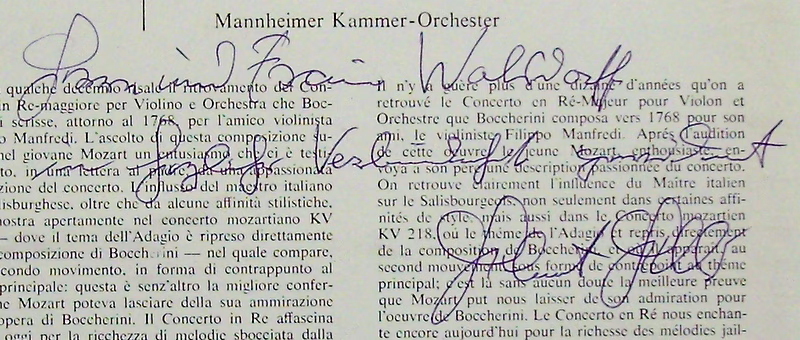 Mannheimer Kammer-Orchester
Waldorff
qualche decennio risale il rinvenimento del Con-
in Re-maggiore per Violino e Orchestra che Boc-
i scrisse, attorno al 1768, per l'amico violinista
Manfredi. L'ascolto di questa composizione su-
nel giovane Mozart un entusiasmo che ci è testi-
to, in una lettera al padre, da una appassionata
zione del concerto. L'influsso del maestro italiano
lisburghese, oltre che da alcune affinità stilistiche,
nostra apertamente nel concerto mozartiano KV
— dove il tema dell'Adagio è ripreso direttamente
composizione di Boccherini — nel quale compare,
condo movimento, in forma di contrappunto al
principale: questa è senz'altro la migliore confer-
he Mozart poteva lasciare della sua ammirazione
opera di Boccherini. Il Concerto in Re affascina
oggi per la ricchezza di melodie sbocciata dalla
Il n'y a guère plus d'une dizaine d'années qu'on a
retrouvé le Concerto en Ré-Majeur pour Violon et
Orchestre que Boccherini composa vers 1768 pour son
ami, le violiniste Filippo Manfredi. Après l'audition
de cette œuvre le jeune Mozart, enthousiaste, en-
voya à son père une description passionnée du concerto.
On retrouve clairement l'influence du Maître italien
sur le Salisbourgeois non seulement dans certaines affi-
nités de style, mais aussi dans le Concerto mozartien
KV 218, où le thème de l'Adagio est repris directement
de la composition de Boccherini et apparaît au
second mouvement sous forme de contrepoint au thème
principal; c'est là sans aucun doute la meilleure preuve
que Mozart put nous laisser de son admiration pour
l'oeuvre de Boccherini. Le Concerto en Ré nous enchan-
te encore aujourd'hui pour la richesse des mélodies jail-